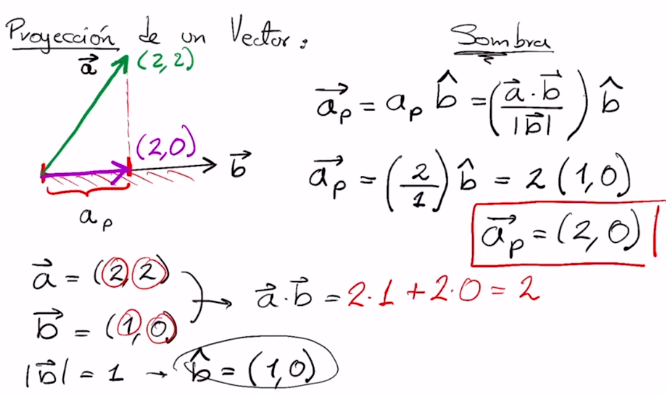 Proyección de un Vector:
Sombra
$\vec{a}$ (2,2)
(2,0)
$\vec{b}$
$a_p$
$\vec{a_p} = a_p \hat{b} = \left(\frac{\vec{a} \cdot \vec{b}}{|\vec{b}|}\right) \hat{b}$
$\vec{a_p} = \left(\frac{2}{1}\right) \hat{b} = 2 (1,0)$
$\vec{a_p} = (2,0)$
$\vec{a} = (2,2)$
$\vec{b} = (1,0)$
$\rightarrow \vec{a} \cdot \vec{b} = 2 \cdot 1 + 2 \cdot 0 = 2$
$|\vec{b}| = 1 \rightarrow \hat{b} = (1,0)$